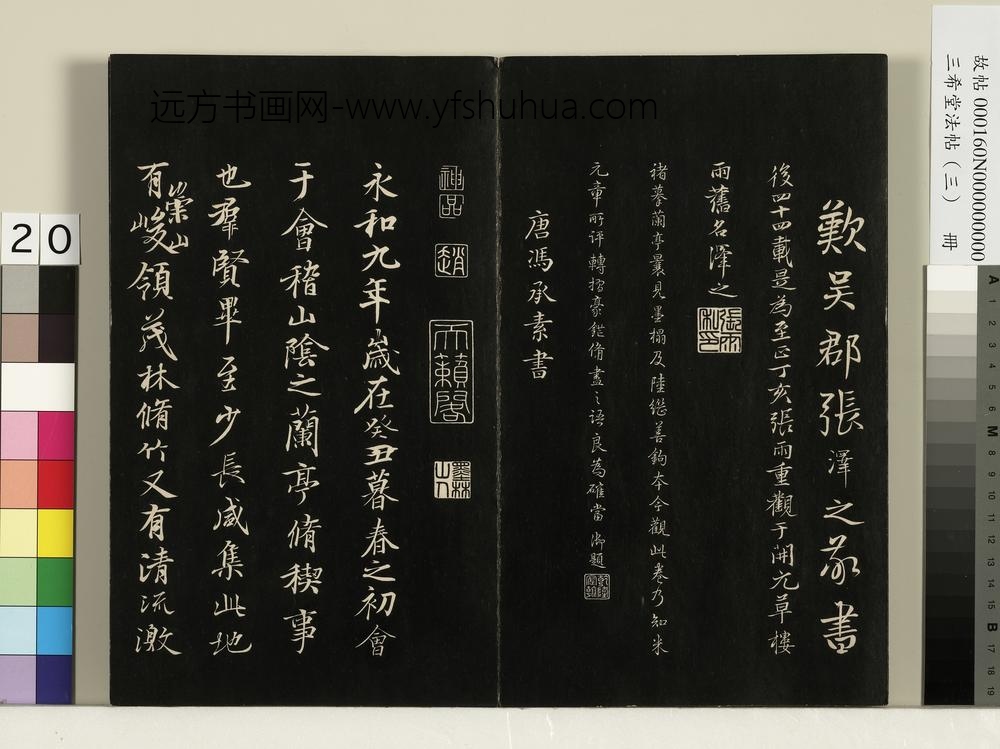 歎吳郡張澤之敬書
後四十四載是為至正丁亥張雨重觀于開元草樓
雨舊名澤之
張雨私印
褚摹蘭亭曩見墨搨及陸繼善鉤本今觀此卷乃知米
元章所評轉摺豪鋩備盡之語良為確當 御題
唐馮承素書
神品
趙
天籟閣
墨林山人
永和九年歲在癸丑暮春之初會
于會稽山陰之蘭亭脩稧事
也羣賢畢至少長咸集此地
有崇山峻領茂林脩竹又有清流激
故帖 000160N000000000
三希堂法帖（三） 冊
远方书画网-www.yfshuhua.com
20
A 1 2 3 4 5 6 M 8 9 10 11 12 13 14 15 B 17 18 19